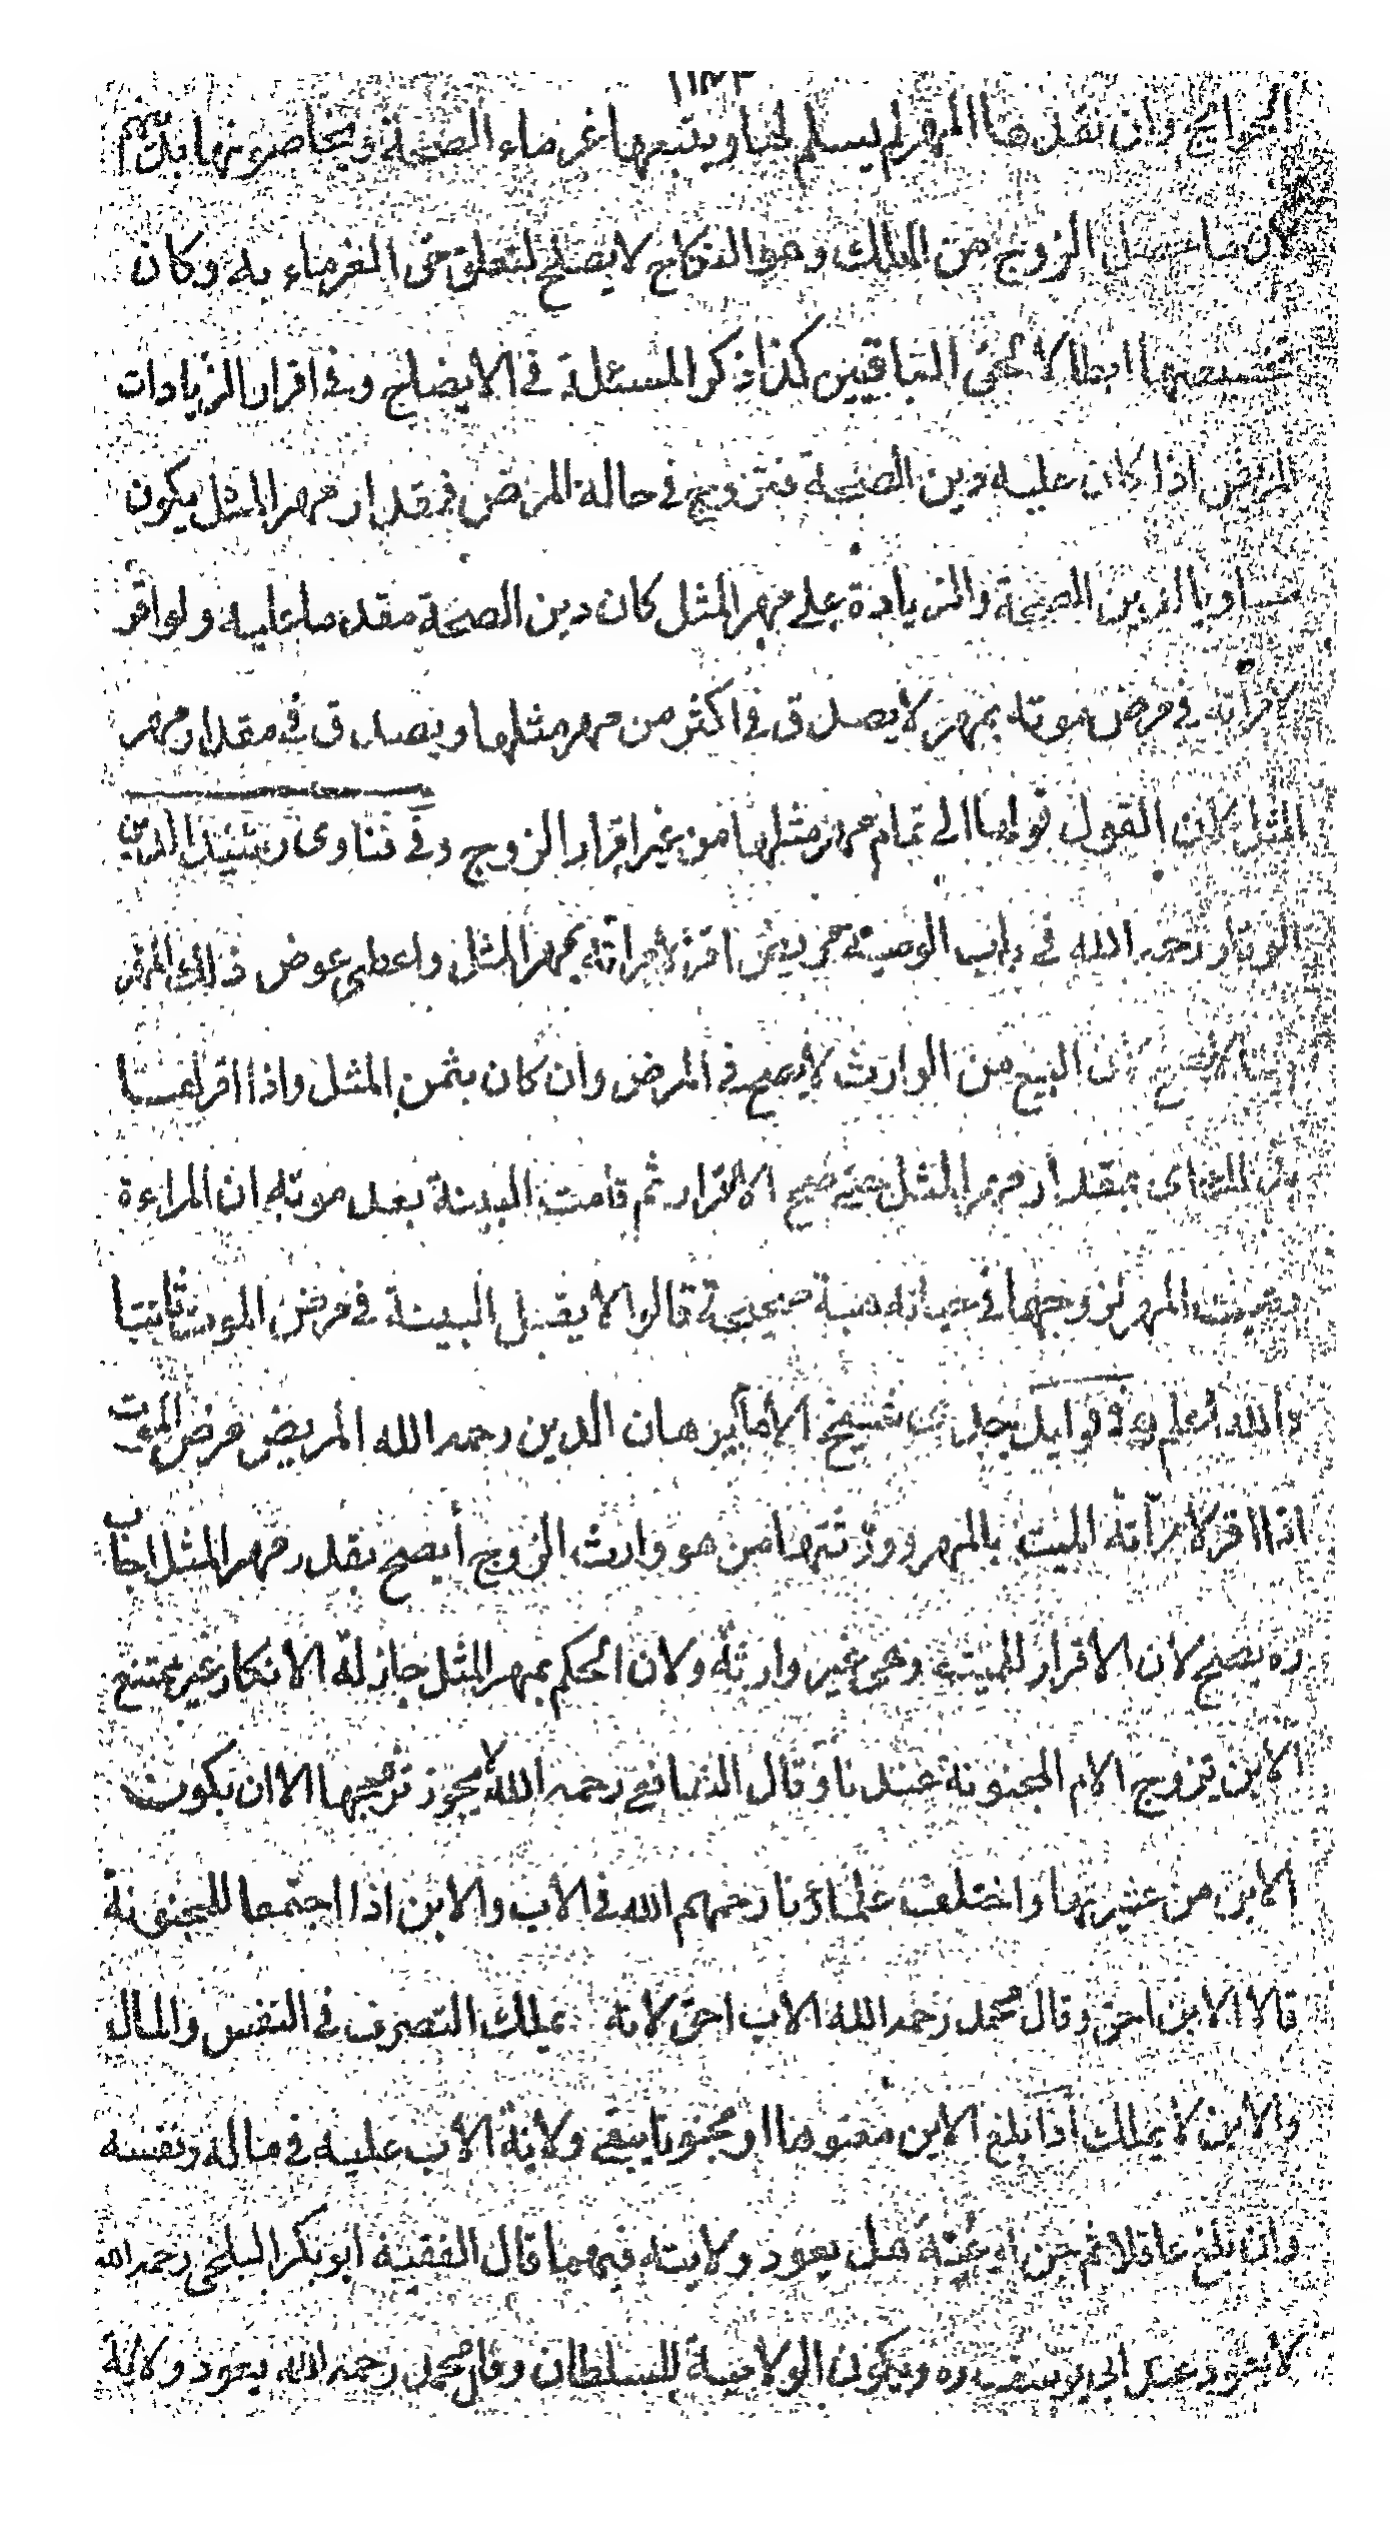 الحوائج وان نقدها المهر لم يسلم لها ويتبعها غرماء الصحة ويخاصمونها بدينهم
لان ما حصل الزوج من الملك وهو النكاح لا يصلح لتعلق حق الغرماء به وكان
تخصيصها ابطالا لحق الباقين كذا ذكر المسئلة في الايضاح وفي اقرار الزيادات
المريض اذا كان عليه دين الصحة فتزوج في حالة المرض فمقدار مهر المثل يكون
مساويا لدين الصحة والزيادة على مهر المثل كان دين الصحة مقدما عليه ولو اقر
لامرأته في مرض موته بمهر لا يصدق في اكثر من مهر مثلها ويصدق في مقدار مهر
المثل لان القول قولها الى تمام مهر مثلها من غير اقرار الزوج وفي فتاوى رشيد الدين
الوتار رحمه الله في باب الوصية مريض اقر لأمراته بمهر المثل واعطى عوض ذلك المهر
لا يصح لان البيع من الوارث لا يصح في المرض وان كان بثمن المثل واذا اقر لها
بمقدار مهر المثل حتى صح الاقرار ثم قامت البينة بعد موته ان المراءة
وهبت المهر لزوجها في حياته هبة صحيحة قالوا لا يقبل البينة في مرض الموت
والله اعلم وفي فوائد جدي شيخ الأسلام برهان الدين رحمه الله المريض مرض الموت
اذا اقر لامرأته الميت بالمهر وورثتها من هو وارث الزوج أيصح بقدر مهر المثل اجاب
ره يصح لان الاقرار للميتة وهي غير وارثه ولان الحكم بمهر المثل جاز له الانكار غير ممتنع
الابن يزوج الام المجنونة عندنا وقال الشافعي رحمه الله لا يجوز تزويجها الا ان يكون
الابن من عشيرتها واختلف علماؤنا رحمهم الله في الاب والابن اذا اجتمعا للمجنونة
قالا الابن احق وقال محمد رحمه الله الاب احق لانه يملك التصرف في النفس والمال
والابن لا يملك اذا بلغ الابن معتوها او مجنونا يبقى ولاية الأب عليه في ماله ونفسه
وان بلغ عاقلا ثم جن او عته هل يعود ولايته فيهما قال الفقيه ابو بكر البلخي رحمه الله
لا يعود عند ابي يوسف ره ويكون الولاية للسلطان وقال محمد رحمه الله يعود ولاية